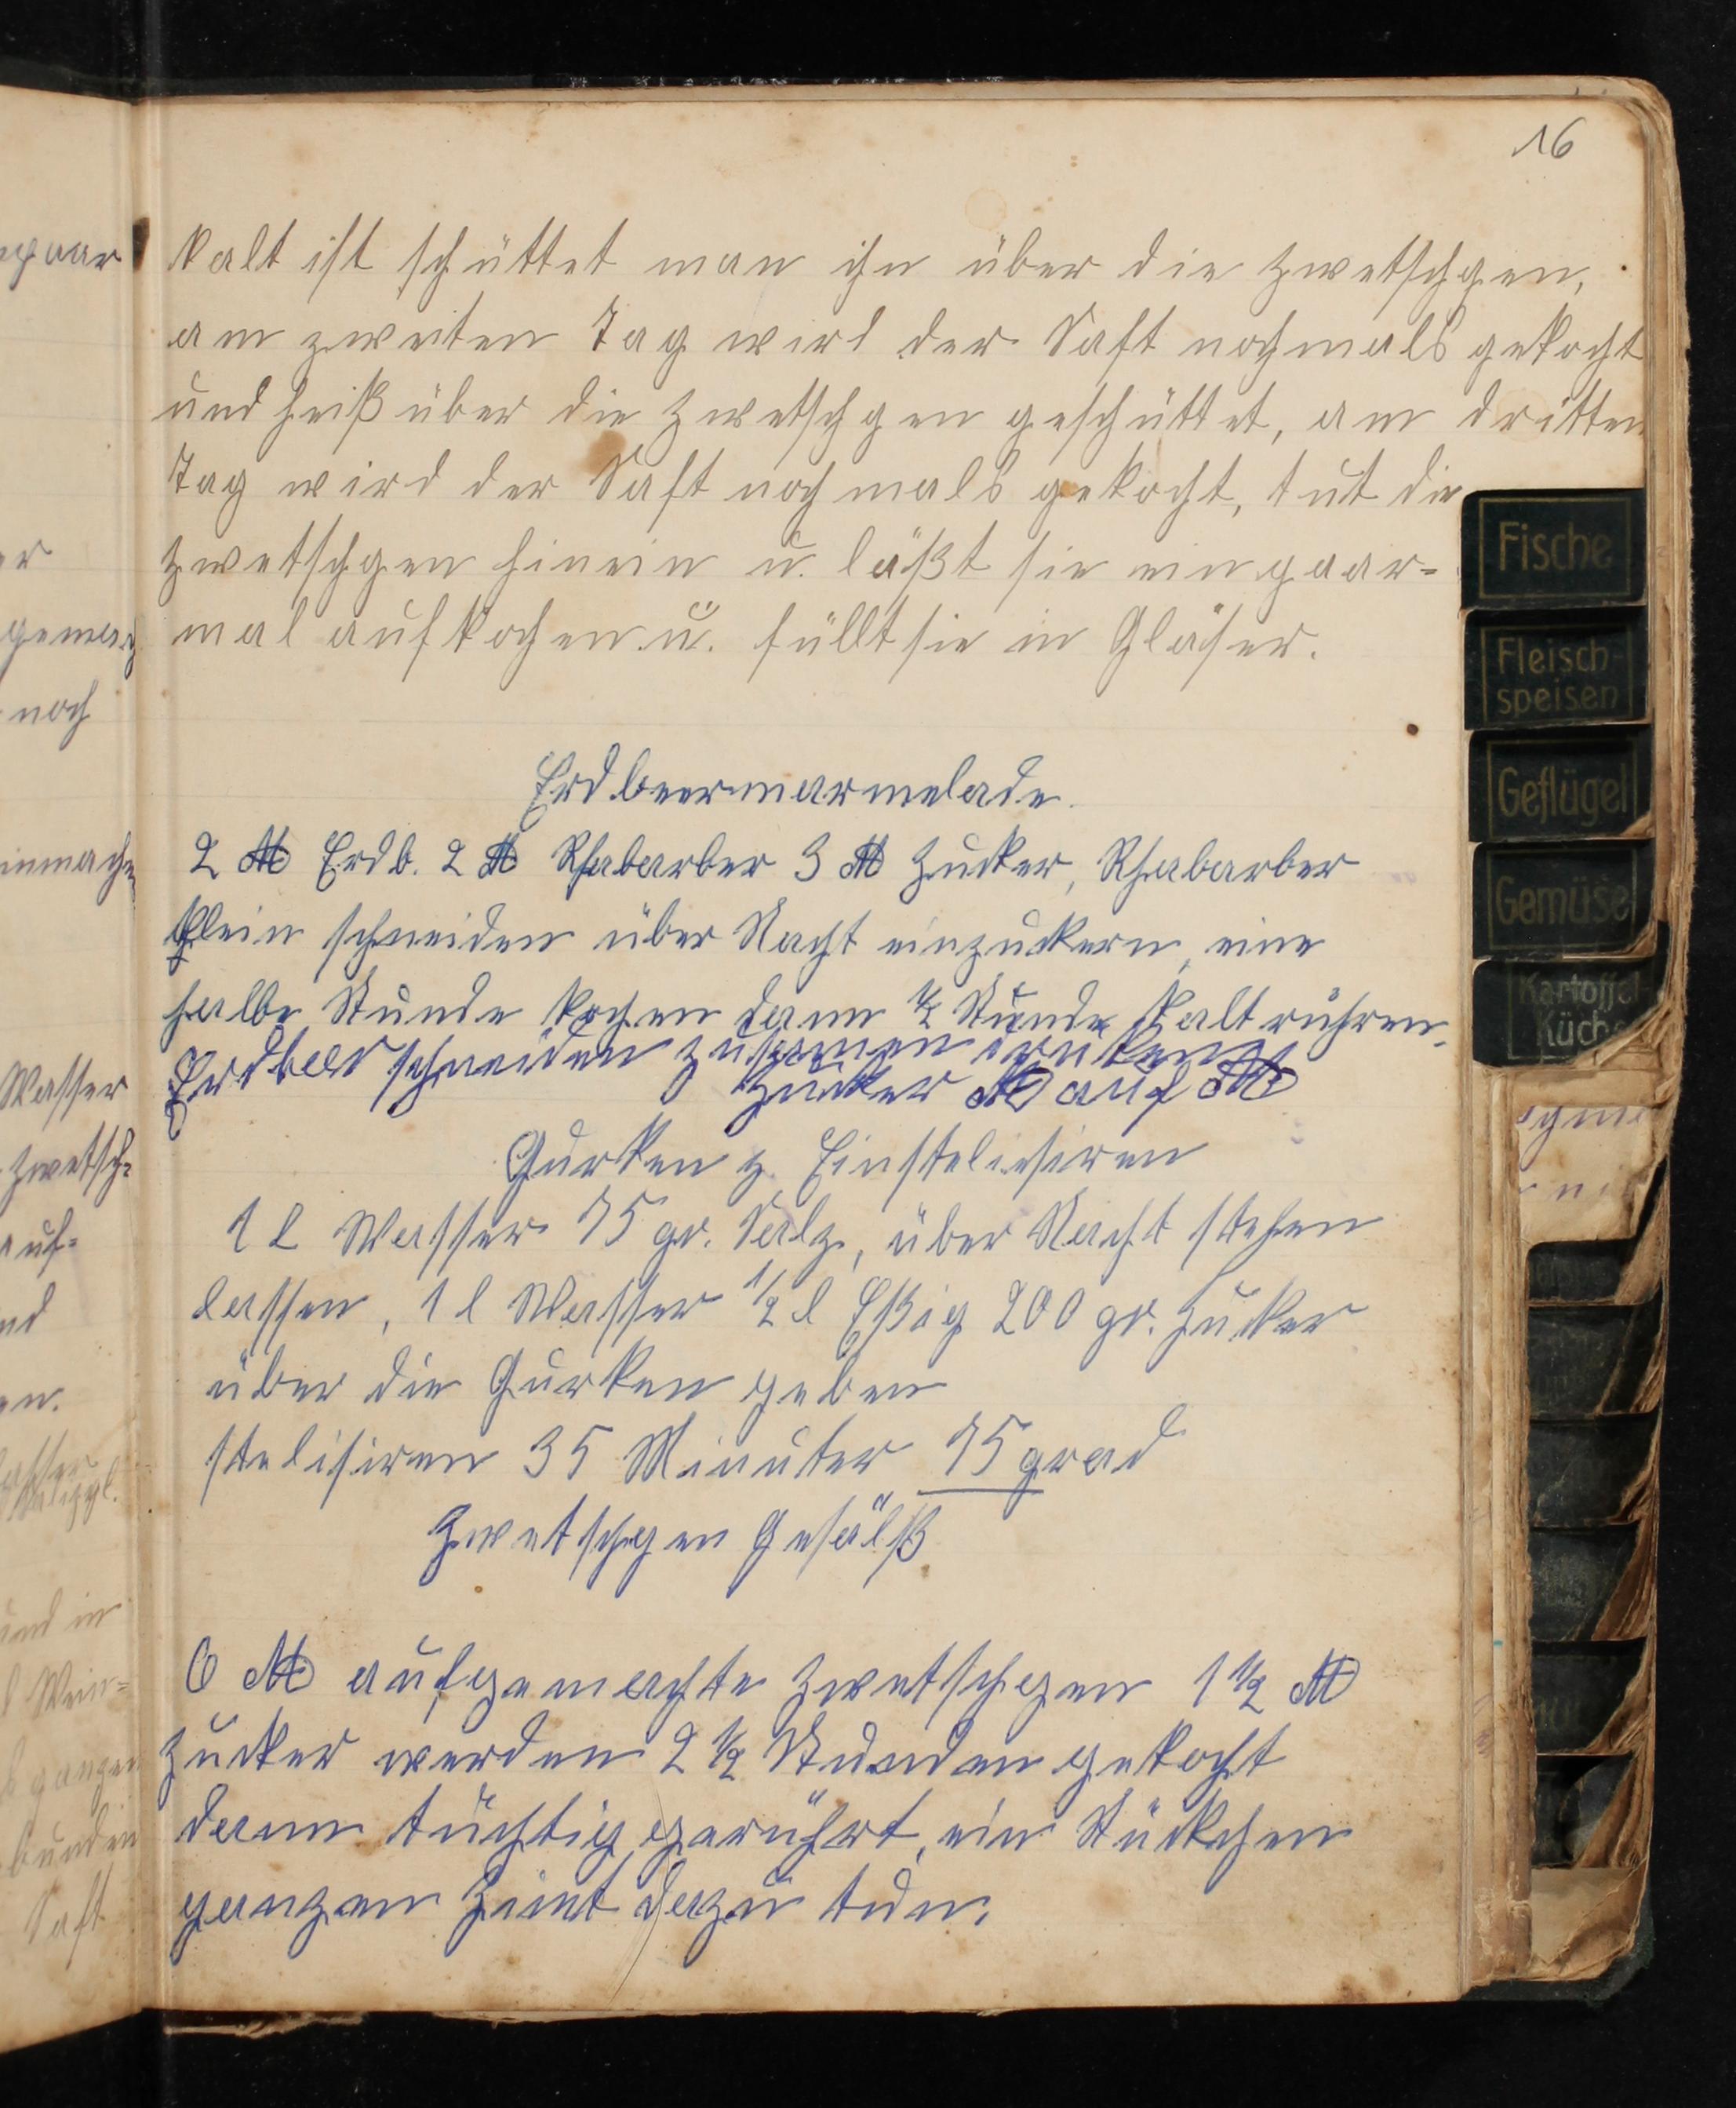 16
kalt ist schüttet man ihn über die Zwetschgen,
am zweiten Tag wird der Saft nochmals gekocht
und heiß über die Zwetschgen geschüttet, am dritten
Tag wird der Saft nochmals gekocht, tut die
Zwetschgen hinein u. läßt sie ein paar-
mal aufkochen u. füllt sie in Gläser.
Erdbeermarmelade.
2 ℔ Erdb. 2 ℔ Rhabarber 3 ℔ Zucker, Rhabarber
klein schneiden über Nacht einzuckern, eine
halbe Stunde kochen dann ½ Stunde kalt rühren.
Erdbeer schneiden zusamen
Zucker ℔ auf ℔
Gurken z. Einstelisiren
1 l Wasser 75 gr. Salz, über Nacht stehen
lassen, 1 l Wasser ½ l Eßig 200 gr. Zucker
über die Gurken geben
stelisiren 35 Minuten 75 grad
Zwetschgen Gesälß
6 ℔ aufgemachte Zwetschgen 1 ½ ℔
Zucker werden 2 ½ Stunden gekocht
dann tüchtig gerührt, ein Stückchen
ganzen Zimt dazu tun.
Fische
Fleisch-
speisen
Geflügel
Gemüse
Kartoffel-
Küche
noch
Wasser
Zwetsch-
auf-
Saft